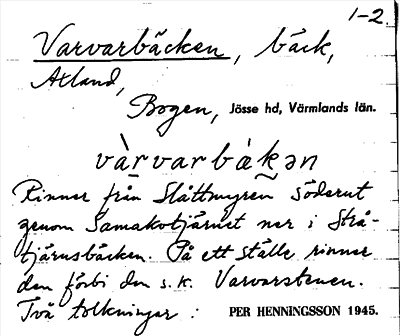 1-2.
Varvarbäcken, bäck,
Atland,
Bogen, Jösse hd, Värmlands län.
vàrvarbàkən
Rinner från Slåttmyren söderut
genom Samakotjärnet ner i Strå-
tjärnsbäcken. På ett ställe rinner
den förbi den s.k. Varvarstenen.
Två tolkningar: PER HENNINGSSON 1945.